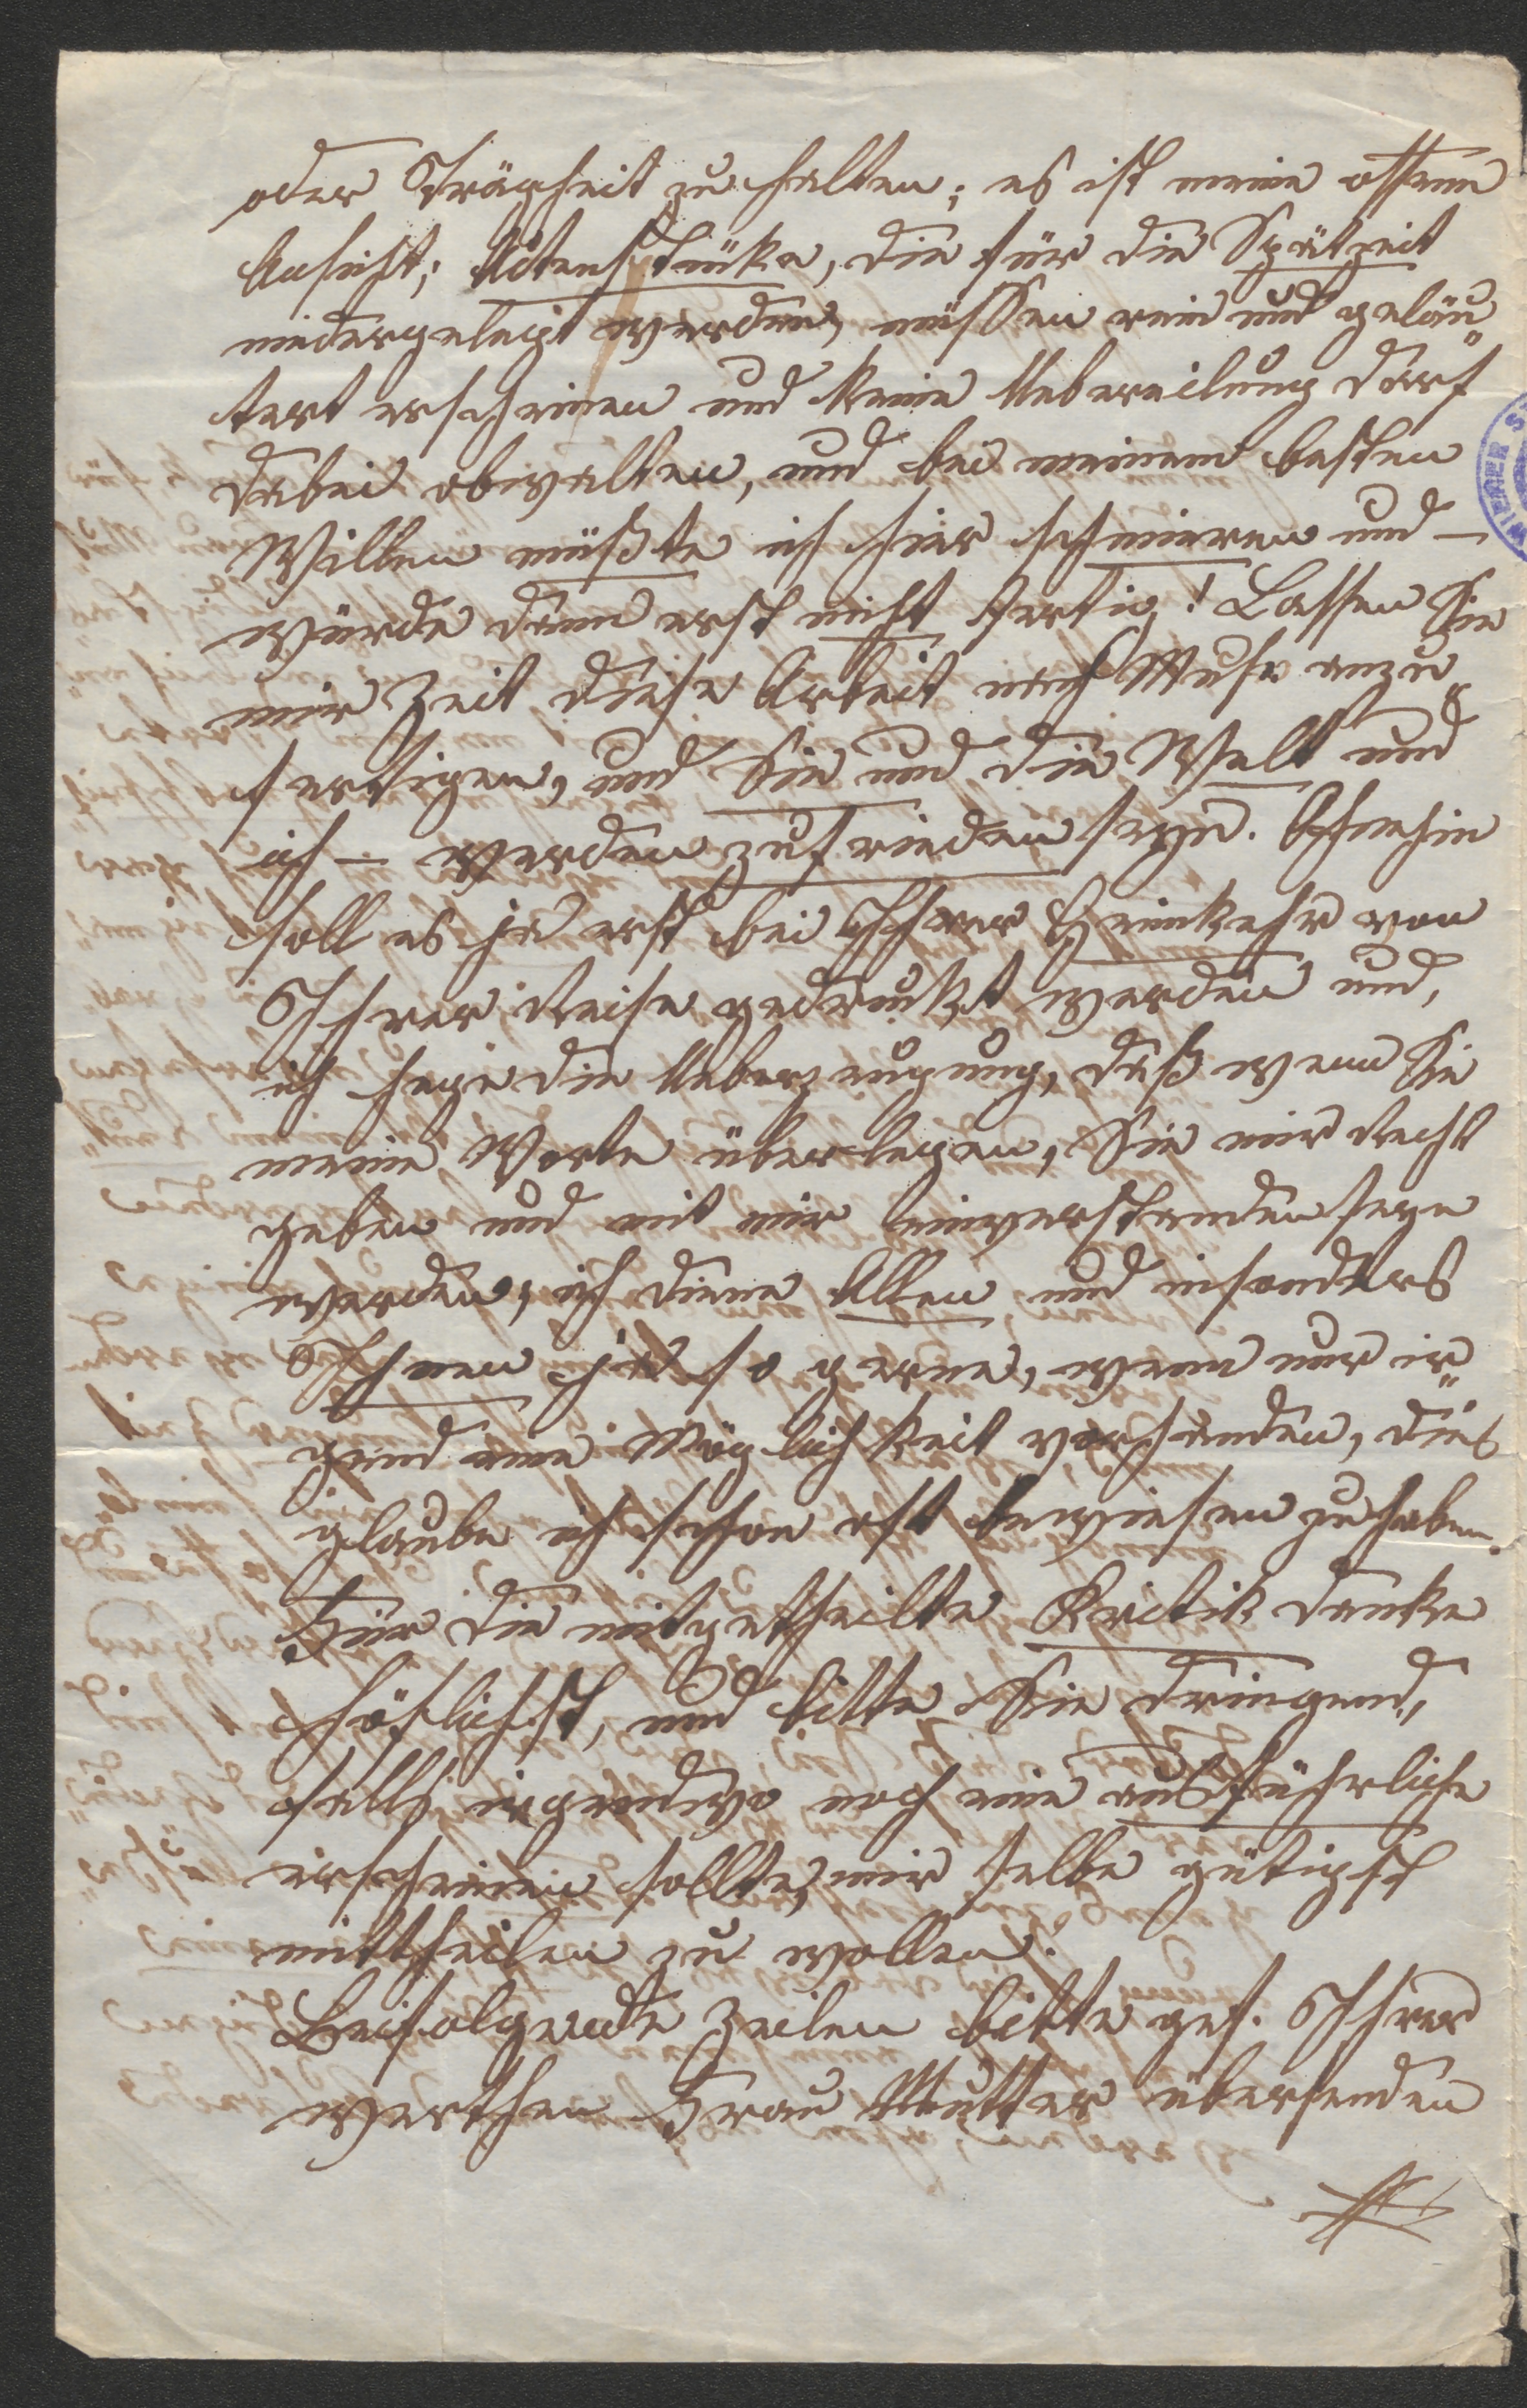 oder Trägheit zu halten; es ist meine offene
Ansicht; Aktenstüke, die für die Spätzeit
niedergelegt werden, müssen rein und geläu„
tert erscheinen und keine Uebereilung darf
dabei obwalten, und bei meinem besten
Willen müßte ich hier schmieren und –
würde dann erst nicht fertig! Lassen Sie
mir Zeit diese Arbeit nach Muse anzu„
fertigen, und Sie und die Welt und
ich – werden zufrieden seyn. Ohnehin
soll es ja erst bei Ihrer Heimkehr von
Ihrer Reise gedrukt werden und,
ich hege die Ueberzeugung, daß wenn Sie
meine Worte überlegen, Sie mir Recht
geben und mit mir einverstanden seyn
werden; ich diene Allen und insonders
Ihnen ja so gerne, wenn nur ir„
gend eine Möglichkeit vorhanden, dies
glaube ich schon oft bewiesen zu haben.
Für die mitgetheilte Kritik danke
höflichst, und bitte Sie dringend,
falls irgendwo noch eine ausführliche
erscheinen sollte, mir selbe gütigst
mittheilen zu wollen.
Beifolgende Zeilen bitte gef. Ihrer
werthen Frau Mutter übersenden
WIENER S